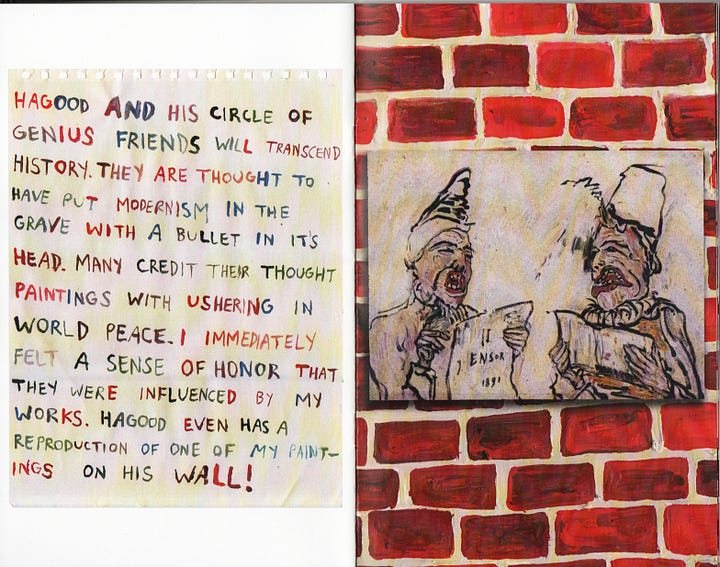 HAGOOD AND HIS CIRCLE OF
GENIUS FRIENDS WILL TRANSCEND
HISTORY. THEY ARE THOUGHT TO
HAVE PUT MODERNISM IN THE
GRAVE WITH A BULLET IN IT'S
HEAD. MANY CREDIT THEIR THOUGHT
PAINTINGS WITH USHERING IN
WORLD PEACE. I IMMEDIATELY
FELT A SENSE OF HONOR THAT
THEY WERE INFLUENCED BY MY
WORKS. HAGOOD EVEN HAS A
REPRODUCTION OF ONE OF MY PAINT-
INGS ON HIS WALL!
J. ENSOR
1891